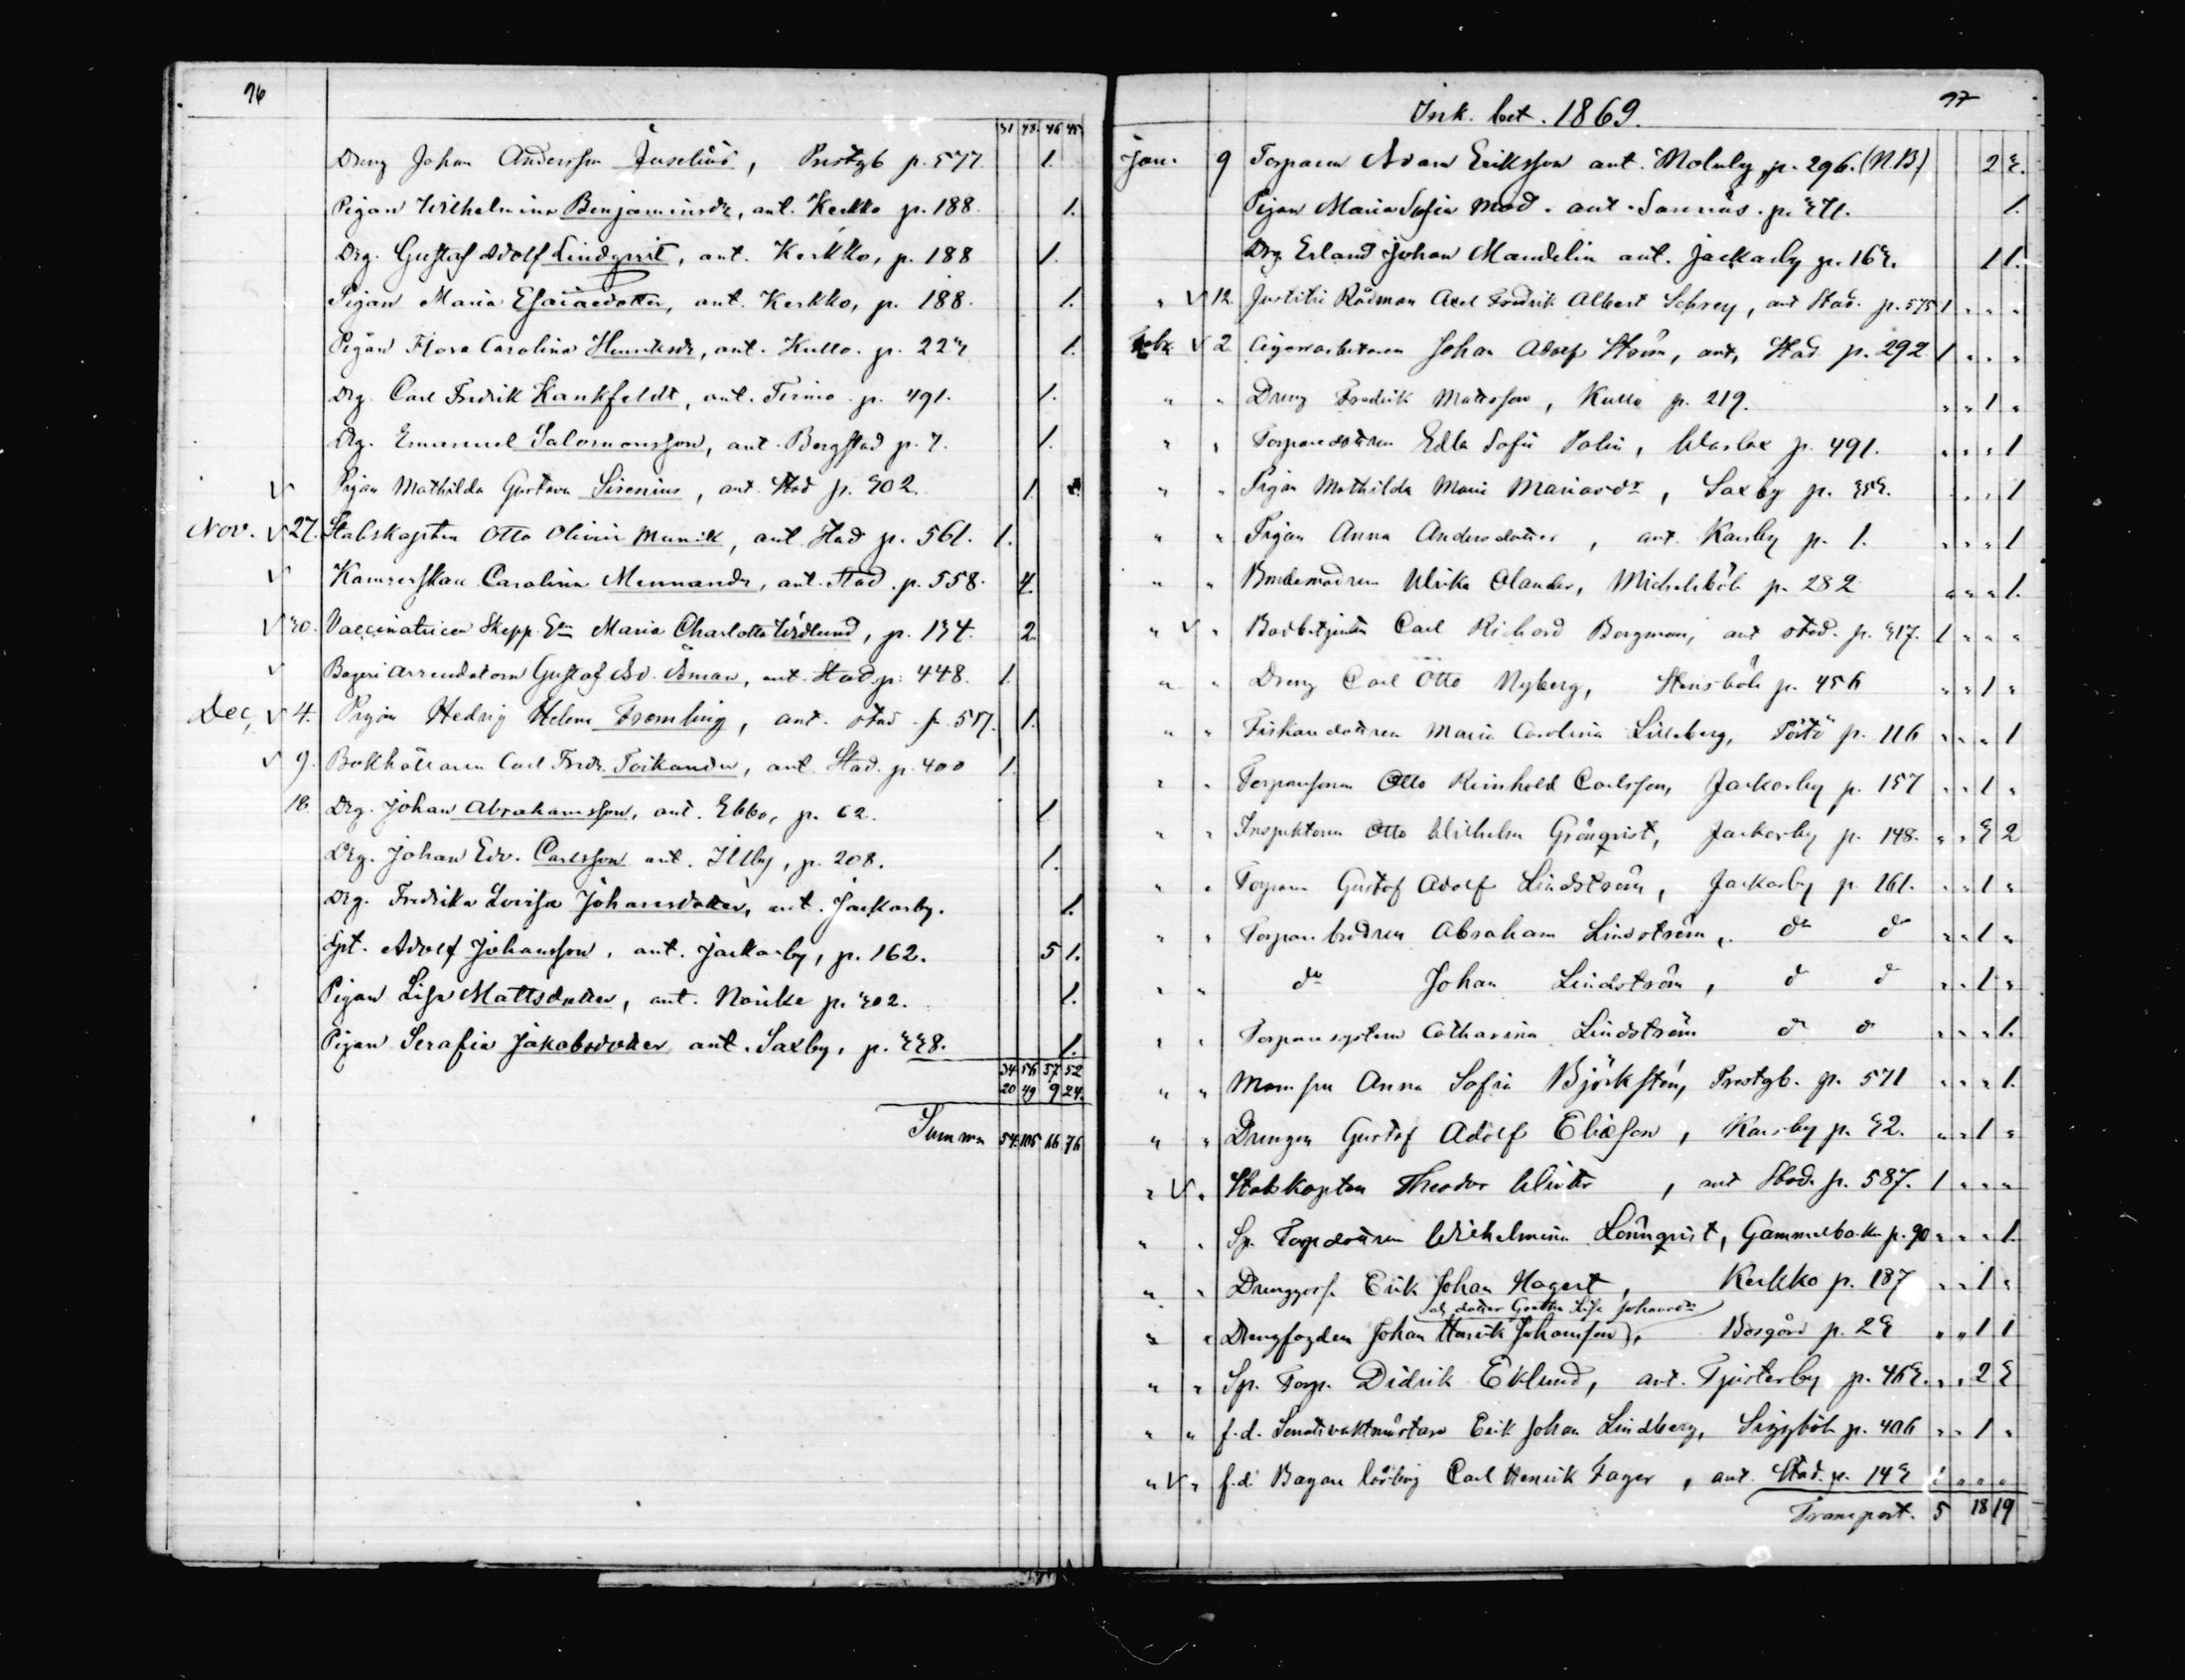 96
31 48 46 45
Dreng Johan Andersson Juselius, Prestgb p. 577. 1.
Pigan Wilhelmina Benjaminsdr, ant. Kerkko p. 188. 1.
Drg. Gustaf Adolf Lindqvist, ant. Kerkko, p. 188 1.
Pigan Maria Esaiaedotter, ant. Kerkko, p. 188. 1.
Pigan Flora Carolina Henriksdr, ant. Kullo. p. 223 1.
Drg. Carl Fredrik Kankfeldt, ant. Tirmo p. 491. 1.
Drg. Emanuel Salomonsson, ant. Borgstad p. 7. 1.
V Pigan Mathilda Gustava Sirenius, ant. Stad p. 302. 1.
Nov. V 27. Stabskapten Otto Olivier Munck, ant. Stad p. 561. 1.
V Kamrerskan Carolina Mennandr, ant. Stad. p. 558. 4.
V 30. Vaccinatricen Skepp. Maria Charlotta Widlund, p. 134. 2.
V Bageri arrendatorn Gustaf Ad. Åman, ant. Stad. p. 448. 1.
Dec, V 4. Pigan Hedvig Helena Fremling, ant. stad. p. 517. 1.
V 9. Bokhållaren Carl Fredr. Toikander, ant. Stad. p. 400 1.
18. Drg. Johan Abrahamsson, ant. Ebbo, p. 62. 1.
Drg. Johan Edv. Carlsson ant. Illby, p. 208. 1.
Drg. Fredrika Lovisa Johansdotter, ant. Jackarby. 1.
Spt. Adolf Johansson, ant. Jackarby, p. 162. 5 1.
Pigan Lisa Mattsdotter, ant. Norike p. 302. 1.
Pigan Serafia Jakobsdotter ant. Saxby, p. 338. 1.
34 56 57 52
20 49 9 24.
Summa 54 105 66 76
97
Ink. bet. 1869.
Jan. 9 Torparen Adam Eriksson ant. Molnby p. 296. (N.B.) 2 3.
Pigan Maria Sofia Mod. ant. Sannäs. p. 371. 1.
Drg Erland Johan Mandelin ant. Jackarby p. 163. 1 1.
" V 12 Justitie Rådman Axel Fredrik Albert Schrey, ant Stad. p. 575 1 " " "
Febr V 2 Cigarrarbetaren Johan Adolf Ström, ant, Stad p. 292 1 " " "
" " Dreng Fredrik Mattsson, Kullo p. 219. " " 1 "
" " Torparedottren Edla Sofia Polin, Warlax p. 491. " " " 1
" " Pigan Mathilda Maria Mariasdr, Saxby p. 353. " " " 1
" " Pigan Anna Andersdotter, ant. Karsby p. 1. " " " 1
" " Bondemodren Ulrika Olander, Michelsböle p. 282 " " " 1.
" V " Badbetjenten Carl Richard Bergman, ant stad. p. 317. 1 " " "
" " Dreng Carl Otto Nyberg, Stensböle p. 456 " " 1 "
" " Fiskaredottren Maria Carolina Lilleberg, Pörtö p. 116 " " " 1
" " Torparesonen Otto Reinhold Carlsson, Jackarby p. 157 " " 1 "
" " Inspektoren Otto Wilhelm Grönqvist, Jackarby p. 148. " " 3 2
" " Torparen Gustaf Adolf Lindström, Jackarby p. 161. " " 1 "
" " Torpare brodren Abraham Lindström, do d " " 1 "
" " do Johan Lindström, d d " " 1 "
" " Torparesystern Catharina Lindström d d " " " 1.
" " Mamsen Anna Sofia Björkstén, Prestgb. p. 571 " " " 1.
" " Drengen Gustaf Adolf Eliasson, Karsby p. 32. " " 1 "
" V " Stabskapten Theodor Winter, ant Stad. p. 587. 1 " " "
" " Sp. Torpdottren Wilhelmina Lönnqvist, Gammelbacka p. 90 " " " 1.
" " Drenggosse Erik Johan Hagert, Kerkko p. 187 " " 1 "
och dotter Greta Lisa Johansdr
" " Drengfogden Johan Henrik Johansson, Bosgård p. 23 " " 1 1
" " Sp. Torp. Didrik Eklund, ant. Tjusterby p. 463. " " 2 3
" " f.d. Senatsvaktmästare Erik Johan Lindberg, Siggböle p. 406 " " 1 "
" V " f.d. Bagare lärling Carl Henrik Fager, ant. Stad. p. 143 1 " " "
Transport. 5 18 19